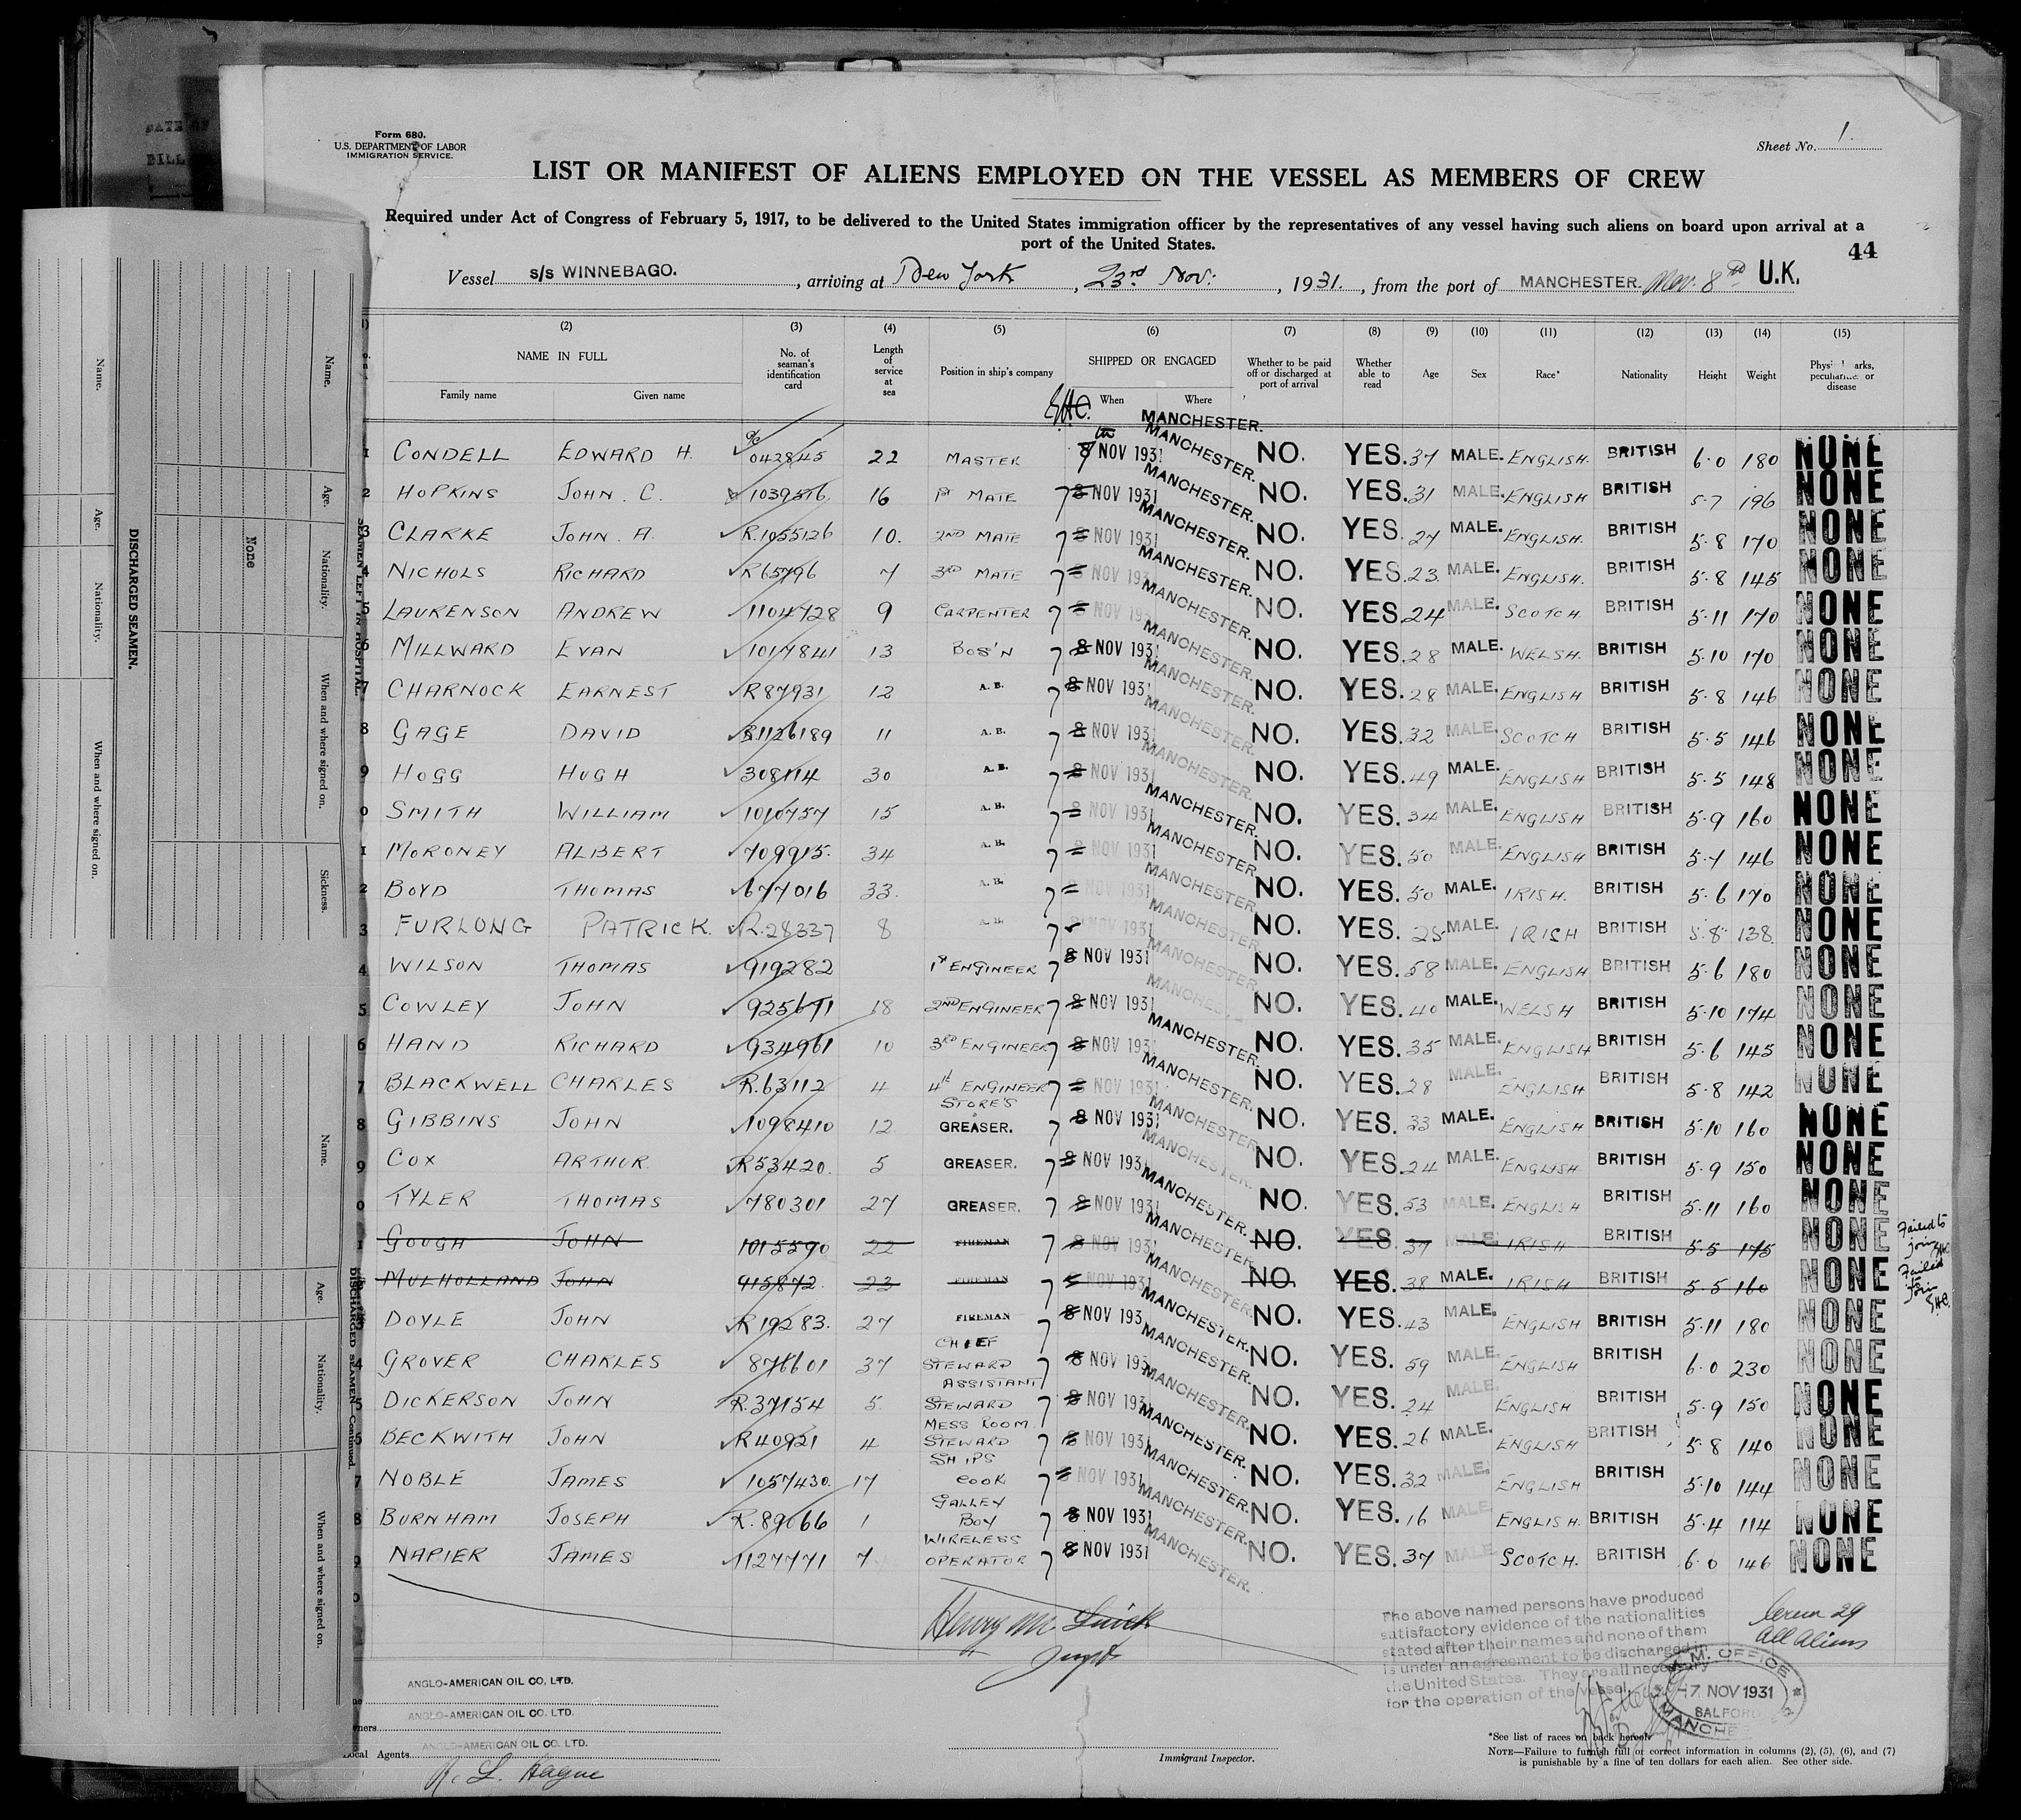 Form 680.
U.S. DEPARTMENT OF LABOR
IMMIGRATION SERVICE.
Sheet No. 1.
LIST OR MANIFEST OF ALIENS EMPLOYED ON THE VESSEL AS MEMBERS OF CREW
Required under Act of Congress of February 5, 1917, to be delivered to the United States immigration officer by the representatives of any vessel having such aliens on board upon arrival at a
port of the United States.
44
Vessel s/s WINNEBAGO. , arriving at New York , 23rd Nov: , 1931. , from the port of MANCHESTER. Nov. 8 U.K.
(2) (3) (4) (5) (6) (7) (8) (9) (10) (11) (12) (13) (14) (15)
NAME IN FULL No. of seaman's identification card Length of service at sea Position in ship's company SHIPPED OR ENGAGED Whether to be paid off or discharged at port of arrival Whether able to read Age Sex Race* Nationality Height Weight
Family name Given name When Where
MANCHESTER.
1 CONDELL EDWARD H. 042845 22 MASTER 7 NOV 1931 MANCHESTER. NO. YES. 37 MALE. ENGLISH. BRITISH 6·0 180 NONE
2 HOPKINS JOHN. C. 1039516 16 1st MATE 7 8 NOV 1931 MANCHESTER. NO. YES. 31 MALE. ENGLISH BRITISH 5·7 196 NONE
3 CLARKE JOHN. A. R.1055126 10. 2ND MATE 7 8 NOV 1931 MANCHESTER. NO. YES. 27 MALE. ENGLISH. BRITISH 5·8 170 NONE
4 NICHOLS RICHARD R65796 7 3RD MATE 7 8 NOV 1931 MANCHESTER. NO. YES. 23 MALE. ENGLISH. BRITISH 5·8 145 NONE
5 LAURENSON ANDREW 1104728 9 CARPENTER 7 8 NOV 1931 MANCHESTER. NO. YES. 24 MALE. SCOTCH BRITISH 5·11 170 NONE
6 MILLWARD EVAN 1017841 13 BOS'N 7 8 NOV 1931 MANCHESTER. NO. YES. 28 MALE. WELSH. BRITISH 5·10 170 NONE
7 CHARNOCK EARNEST R87931 12 A. B. 7 8 NOV 1931 MANCHESTER. NO. YES. 28 MALE. ENGLISH BRITISH 5·8 146 NONE
8 GAGE DAVID 1126189 11 A. B. 7 8 NOV 1931 MANCHESTER. NO. YES. 32 MALE. SCOTCH BRITISH 5·5 146 NONE
9 HOGG HUGH 308114 30 A. B. 7 8 NOV 1931 MANCHESTER. NO. YES. 49 MALE. ENGLISH BRITISH 5·5 148 NONE
0 SMITH WILLIAM 1010757 15 A. B. 7 8 NOV 1931 MANCHESTER. NO. YES. 34 MALE. ENGLISH BRITISH 5·9 160 NONE
1 MORONEY ALBERT 709915. 34 A. B. 7 8 NOV 1931 MANCHESTER. NO. YES. 50 MALE. ENGLISH BRITISH 5·7 146 NONE
2 BOYD THOMAS 677016 33. A. B. 7 NOV 1931 MANCHESTER. NO. YES. 50 MALE. IRISH. BRITISH 5·6 170 NONE
3 FURLONG PATRICK. R.28337 8 A. B. 7 NOV 1931 MANCHESTER. NO. YES. 25 MALE. IRISH BRITISH 5·8 138. NONE
4 WILSON THOMAS 919282 1st ENGINEER 7 8 NOV 1931 MANCHESTER. NO. YES. 58 MALE. ENGLISH BRITISH 5·6 180 NONE
5 COWLEY JOHN 925671 18 2ND ENGINEER 7 8 NOV 1931 MANCHESTER. NO. YES. 40 MALE. WELSH BRITISH 5·10 174 NONE
6 HAND RICHARD 934961 10 3RD ENGINEER 7 8 NOV 1931 MANCHESTER. NO. YES. 35 MALE. ENGLISH BRITISH 5·6 145 NONE
7 BLACKWELL CHARLES R.63112 4 4th ENGINEER 7 8 NOV 1931 MANCHESTER. NO. YES. 28 MALE. ENGLISH BRITISH 5·8 142 NONE
8 GIBBINS JOHN 1098410 12 STORE'S & GREASER. 7 8 NOV 1931 MANCHESTER. NO. YES. 33 MALE. ENGLISH BRITISH 5·10 160 NONE
9 COX ARTHUR. R53420. 5 GREASER. 7 8 NOV 1931 MANCHESTER. NO. YES. 24 MALE. ENGLISH BRITISH 5·9 150 NONE
0 TYLER THOMAS 780301 27 GREASER. 7 8 NOV 1931 MANCHESTER. NO. YES. 53 MALE. ENGLISH BRITISH 5·11 160 NONE
1 GOUGH JOHN 1015590 22 FIREMAN 7 8 NOV 1931 MANCHESTER. NO. YES. 37 MALE. IRISH BRITISH 5·5 175 NONE Failed to join EHC.
MULHOLLAND JOHN 915872. 23 FIREMAN 7 8 NOV 1931 MANCHESTER. NO. YES. 38 MALE. IRISH BRITISH 5·5 160 NONE Failed to join EHC.
DOYLE JOHN R 19283. 27 FIREMAN 7 8 NOV 193 MANCHESTER. NO. YES. 43 MALE. ENGLISH BRITISH 5·11 180 NONE
4 GROVER CHARLES 876601 37 CHIEF STEWARD 7 8 NOV 193 MANCHESTER. NO. YES. 59 MALE. ENGLISH BRITISH 6·0 230 NONE
5 DICKERSON JOHN R.37154 5. ASSISTANT STEWARD 7 8 NOV 193 MANCHESTER. NO. YES. 24 MALE. ENGLISH BRITISH 5·9 150 NONE
6 BECKWITH JOHN R40921 4 MESS ROOM. STEWARD 7 8 NOV 1931 MANCHESTER. NO. YES. 26 MALE. ENGLISH BRITISH 5·8 140 NONE
7 NOBLE JAMES 1057430. 17 SHIPS COOK 7 8 NOV 1931 MANCHESTER. NO. YES. 32 MALE. ENGLISH BRITISH 5·10 144 NONE
8 BURNHAM JOSEPH R.89066 1 GALLEY BOY 7 8 NOV 1931 MANCHESTER. NO. YES. 16 MALE. ENGLISH. BRITISH 5·4 114 NONE
9 NAPIER JAMES 1127771 7 WIRELESS OPERATOR 7 8 NOV 1931 MANCHESTER. NO. YES. 37 MALE SCOTCH. BRITISH 6·0 146 NONE
0
Henry Mc
The above named persons have produced
satisfactory evidence of the nationalities
stated after their names and none of them
is under an agreement to be discharged in
the United States. They are all necessary
for the operation of the vessel.
29
All Aliens
M. OFFICE
-7 NOV 1931
ANGLO-AMERICAN OIL CO, LTD.
ANGLO-AMERICAN OIL CO. LTD.
Owners
ANGLO-AMERICAN OIL CO. LTD.
Local Agents
R. L. Hague
Immigrant Inspector.
*See list of races on back hereof.
NOTE—Failure to furnish full or correct information in columns (2), (5), (6), and (7)
is punishable by a fine of ten dollars for each alien. See other side.
SEAMEN LEFT IN HOSPITAL.
Name. Age. Nationality. When and where signed on. Sickness.
None
DISCHARGED SEAMEN.
Name. Age. Nationality. When and where signed on.
DISCHARGED SEAMEN—Continued.
Name. Age. Nationality. When and where signed on.
DATE OF
BILL